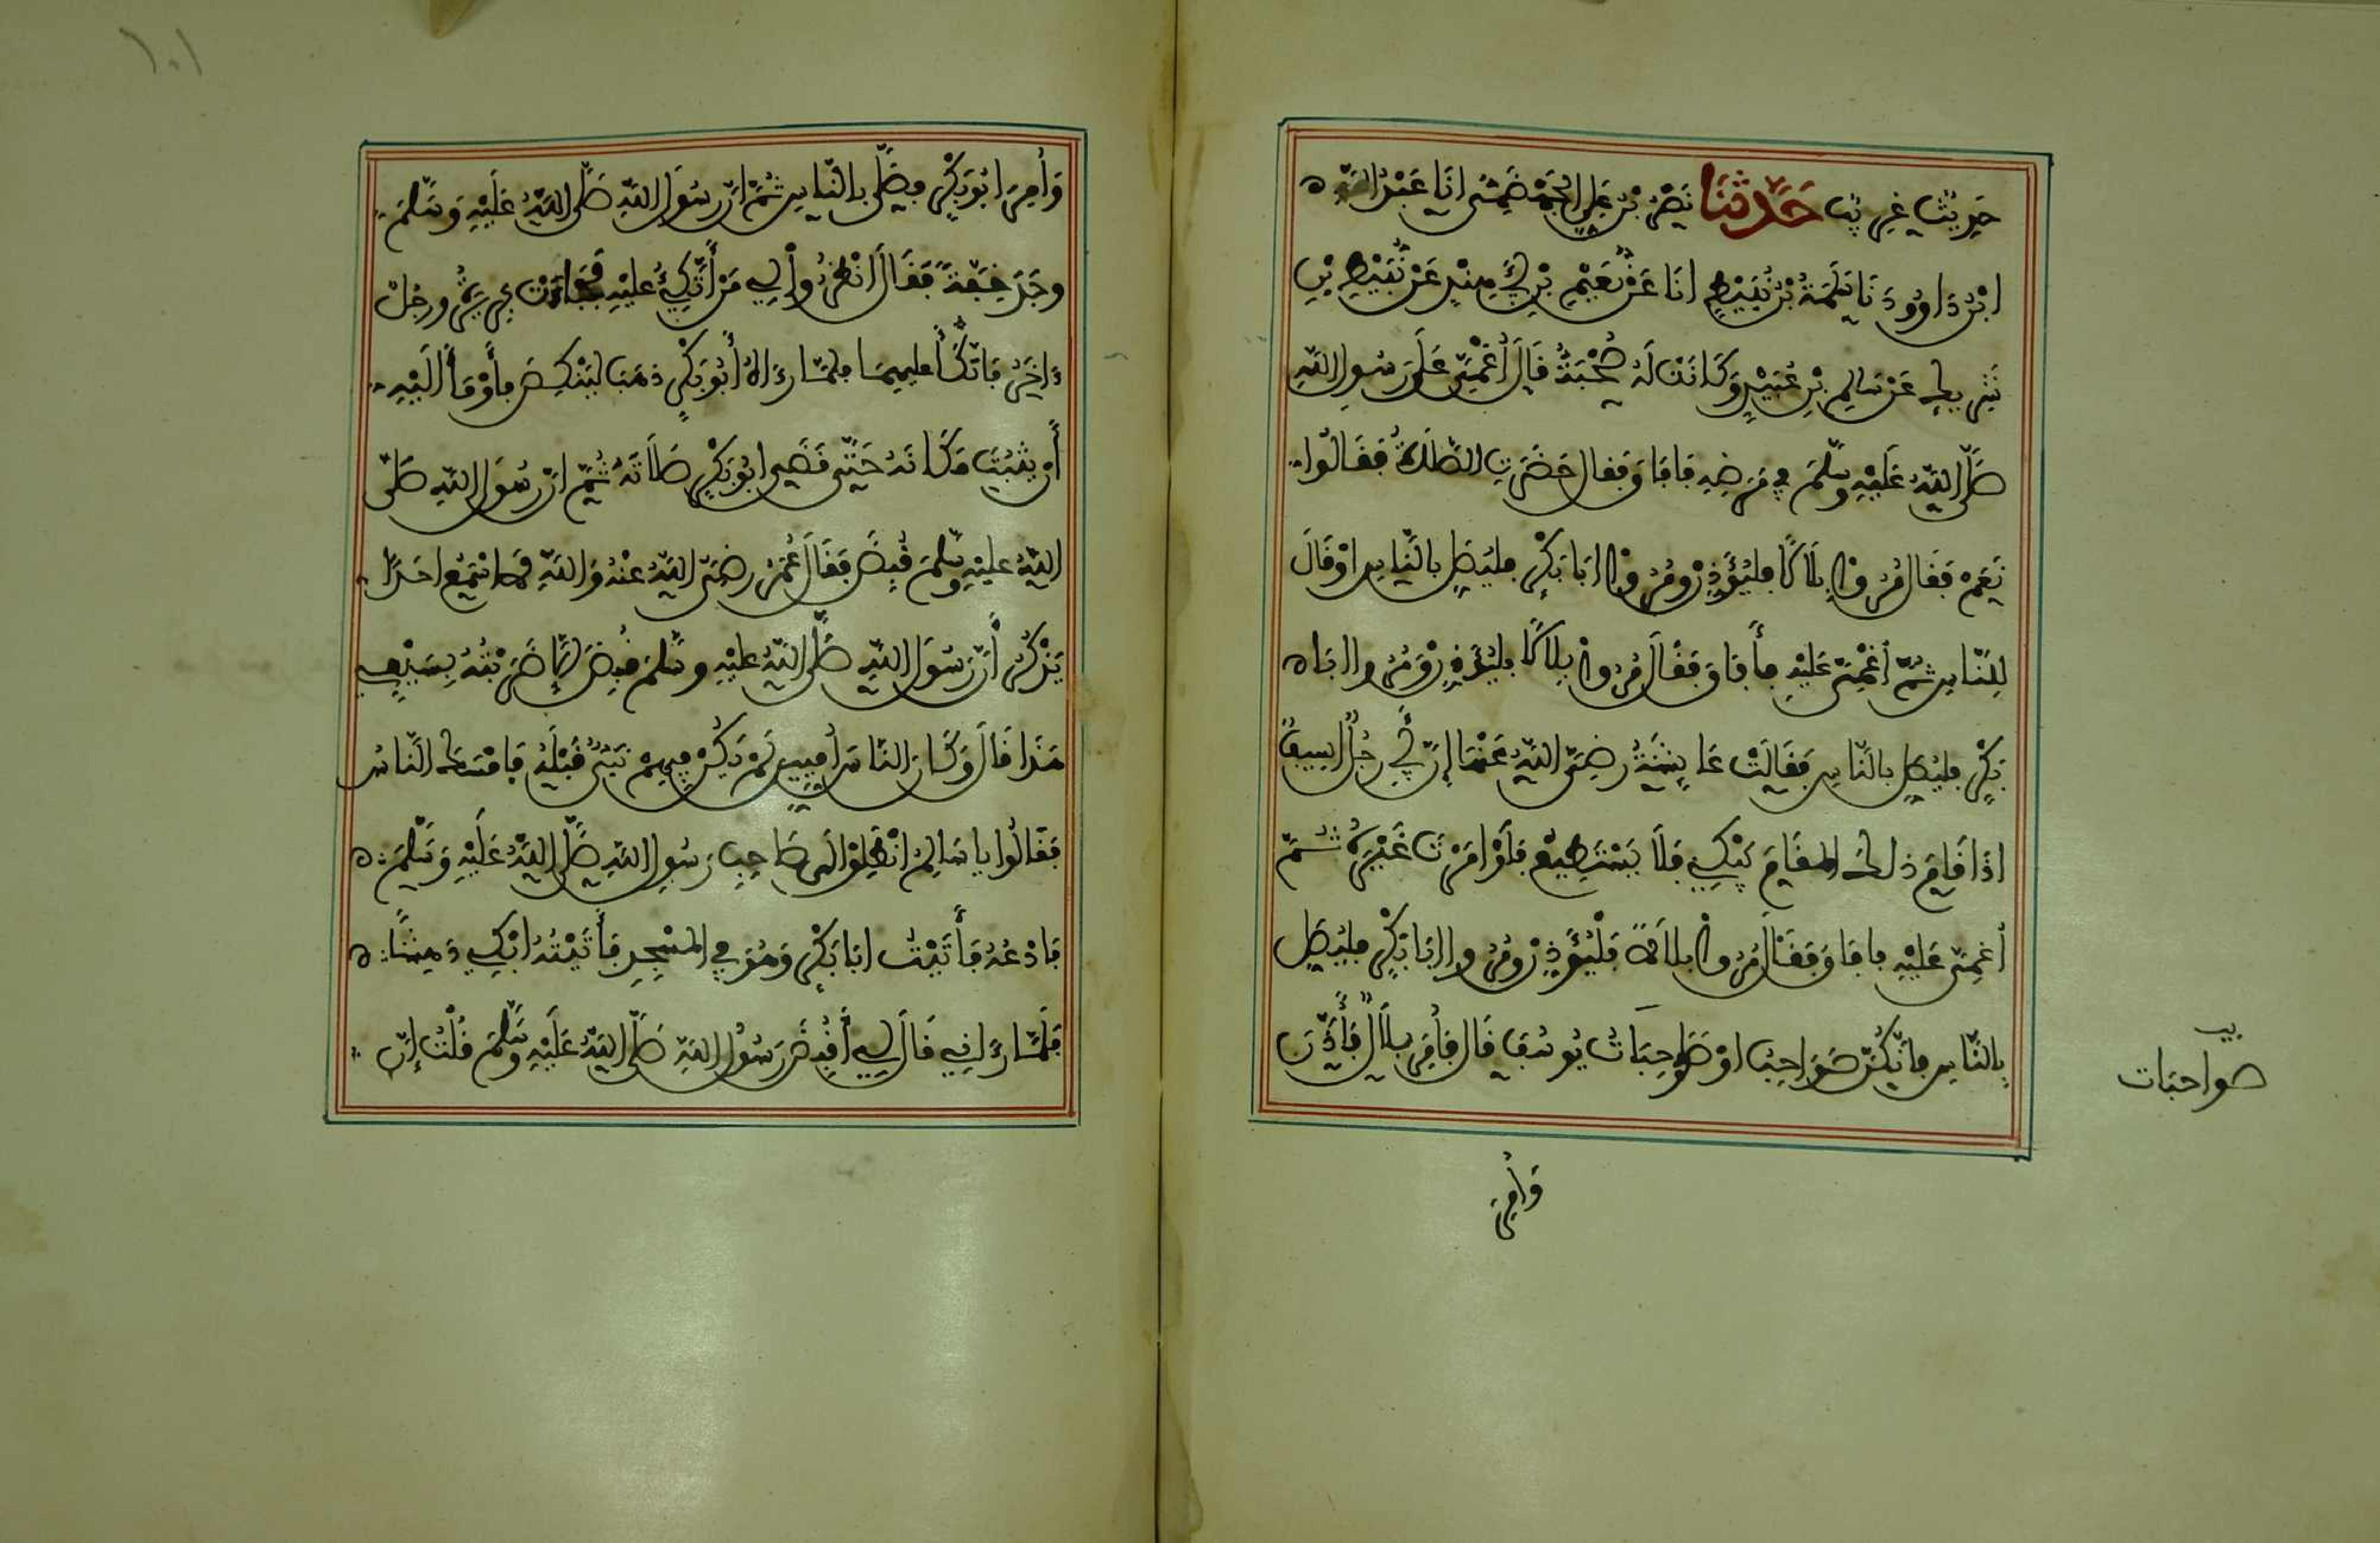 حَدِيثٌ غَرِيبٌ حَدَّثَنَا نَصْرُ بْنُ عَلِيٍّ الْجَهْضَمِيُّ انَا عَبْدُ اللَّهِ
ابْنُ دَاوُودَ نَا سَلَمَةُ بْنُ نُبَيْطٍ انَا عَنْ نُعَيْمِ بْنِ أَبِي هِنْدٍ عَنْ نُبَيْطِ بْنِ
شَرِيطٍ عَنْ سَالِمِ بْنِ عُبَيْدٍ وَكَانَتْ لَهُ صُحْبَةٌ قَالَ أُغْمِيَ عَلَى رَسُولِ اللَّهِ
صَلَّى اللَّهُ عَلَيْهِ وَسَلَّمَ فِي مَرَضِهِ فَافَاقَ فَقَالَ حَضَرَتِ الصَّلَاةُ فَقَالُوا
نَعَمْ فَقَالَ مُرُوا بِلَالًا فَلْيُؤَذِّنْ وَمُرُوا ابَا بَكْرٍ فَلْيُصَلِّ بِالنَّاسِ اوْ قَالَ
لِلنَّاسِ ثُمَّ أُغْمِيَ عَلَيْهِ فَأَفَاقَ فَقَالَ مُرُوا بِلَالًا فَلْيُؤَذِّنْ وَمُرُوا ابَا
بَكْرٍ فَلْيُصَلِّ بِالنَّاسِ فَقَالَتْ عَايِشَةُ رَضِيَ اللَّهُ عَنْهَا إِنَّ أَبِي رَجُلٌ اسِيفٌ
اذَا قَامَ ذَلِكَ الْمَقَامَ يَبْكِي فَلَا يَسْتَطِيعُ فَلَوْ امَرْتَ غَيْرَهُ ثُمَّ
أُغْمِيَ عَلَيْهِ فَافَاقَ فَقَالَ مُرُوا بِلَالًا فَلْيُؤَذِّنْ وَمُرُوا ابَا بَكْرٍ فَلْيُصَلِّ
بِالنَّاسِ فَانَّكُنَّ صَوَاحِبُ اوْ صَوَاحِبَاتُ يُوسُفَ قَالَ فَأُمِرَ بِلَالٌ فَأَذَّنَ
صواحبات
وَأُمِرَ
١٠١
وَأُمِرَ ابُو بَكْرٍ فَصَلَّى بِالنَّاسِ ثُمَّ انَّ رَسُولَ اللَّهِ صَلَّى اللَّهُ عَلَيْهِ وَسَلَّمَ
وَجَدَ خِفَّةً فَقَالَ انْظُرُوا لِي مَنْ أَتَّكِئُ عَلَيْهِ فَجَاءَتْ بَرِيرَةُ وَرَجُلٌ
ءَاخَرُ فَاتَّكَأَ عَلَيْهِمَا فَلَمَّا رَءَاهُ أَبُو بَكْرٍ ذَهَبَ لِيَنْكِصَ فَأَوْمَأَ الَيْهِ
أَنْ يَثْبُتَ مَكَانَهُ حَتَّى قَضَى ابُو بَكْرٍ صَلَاتَهُ ثُمَّ انَّ رَسُولَ اللَّهِ صَلَّى
اللَّهُ عَلَيْهِ وَسَلَّمَ قُبِضَ فَقَالَ عُمَرُ رَضِيَ اللَّهُ عَنْهُ وَاللَّهِ لَا اسْمَعُ احَدًا
يَذْكُرُ أَنَّ رَسُولَ اللَّهِ صَلَّى اللَّهُ عَلَيْهِ وَسَلَّمَ قُبِضَ إِلَّا ضَرَبْتُهُ بِسَيْفِي
هَذَا قَالَ وَكَانَ النَّاسُ أُمِّيِّينَ لَمْ يَكُنْ فِيهِمْ نَبِيٌّ قَبْلَهُ فَامْسَكَ النَّاسُ
فَقَالُوا يَا سَالِمُ انْطَلِقْ الَى صَاحِبِ رَسُولِ اللَّهِ صَلَّى اللَّهُ عَلَيْهِ وَسَلَّمَ
فَادْعُهُ فَأَتَيْتُ ابَا بَكْرٍ وَهُوَ فِي الْمَسْجِدِ فَأَتَيْتُهُ ابْكِي دَهِشًا
فَلَمَّا رَءَانِي قَالَ لِي أَقُبِضَ رَسُولُ اللَّهِ صَلَّى اللَّهُ عَلَيْهِ وَسَلَّمَ قُلْتُ إِنَّ